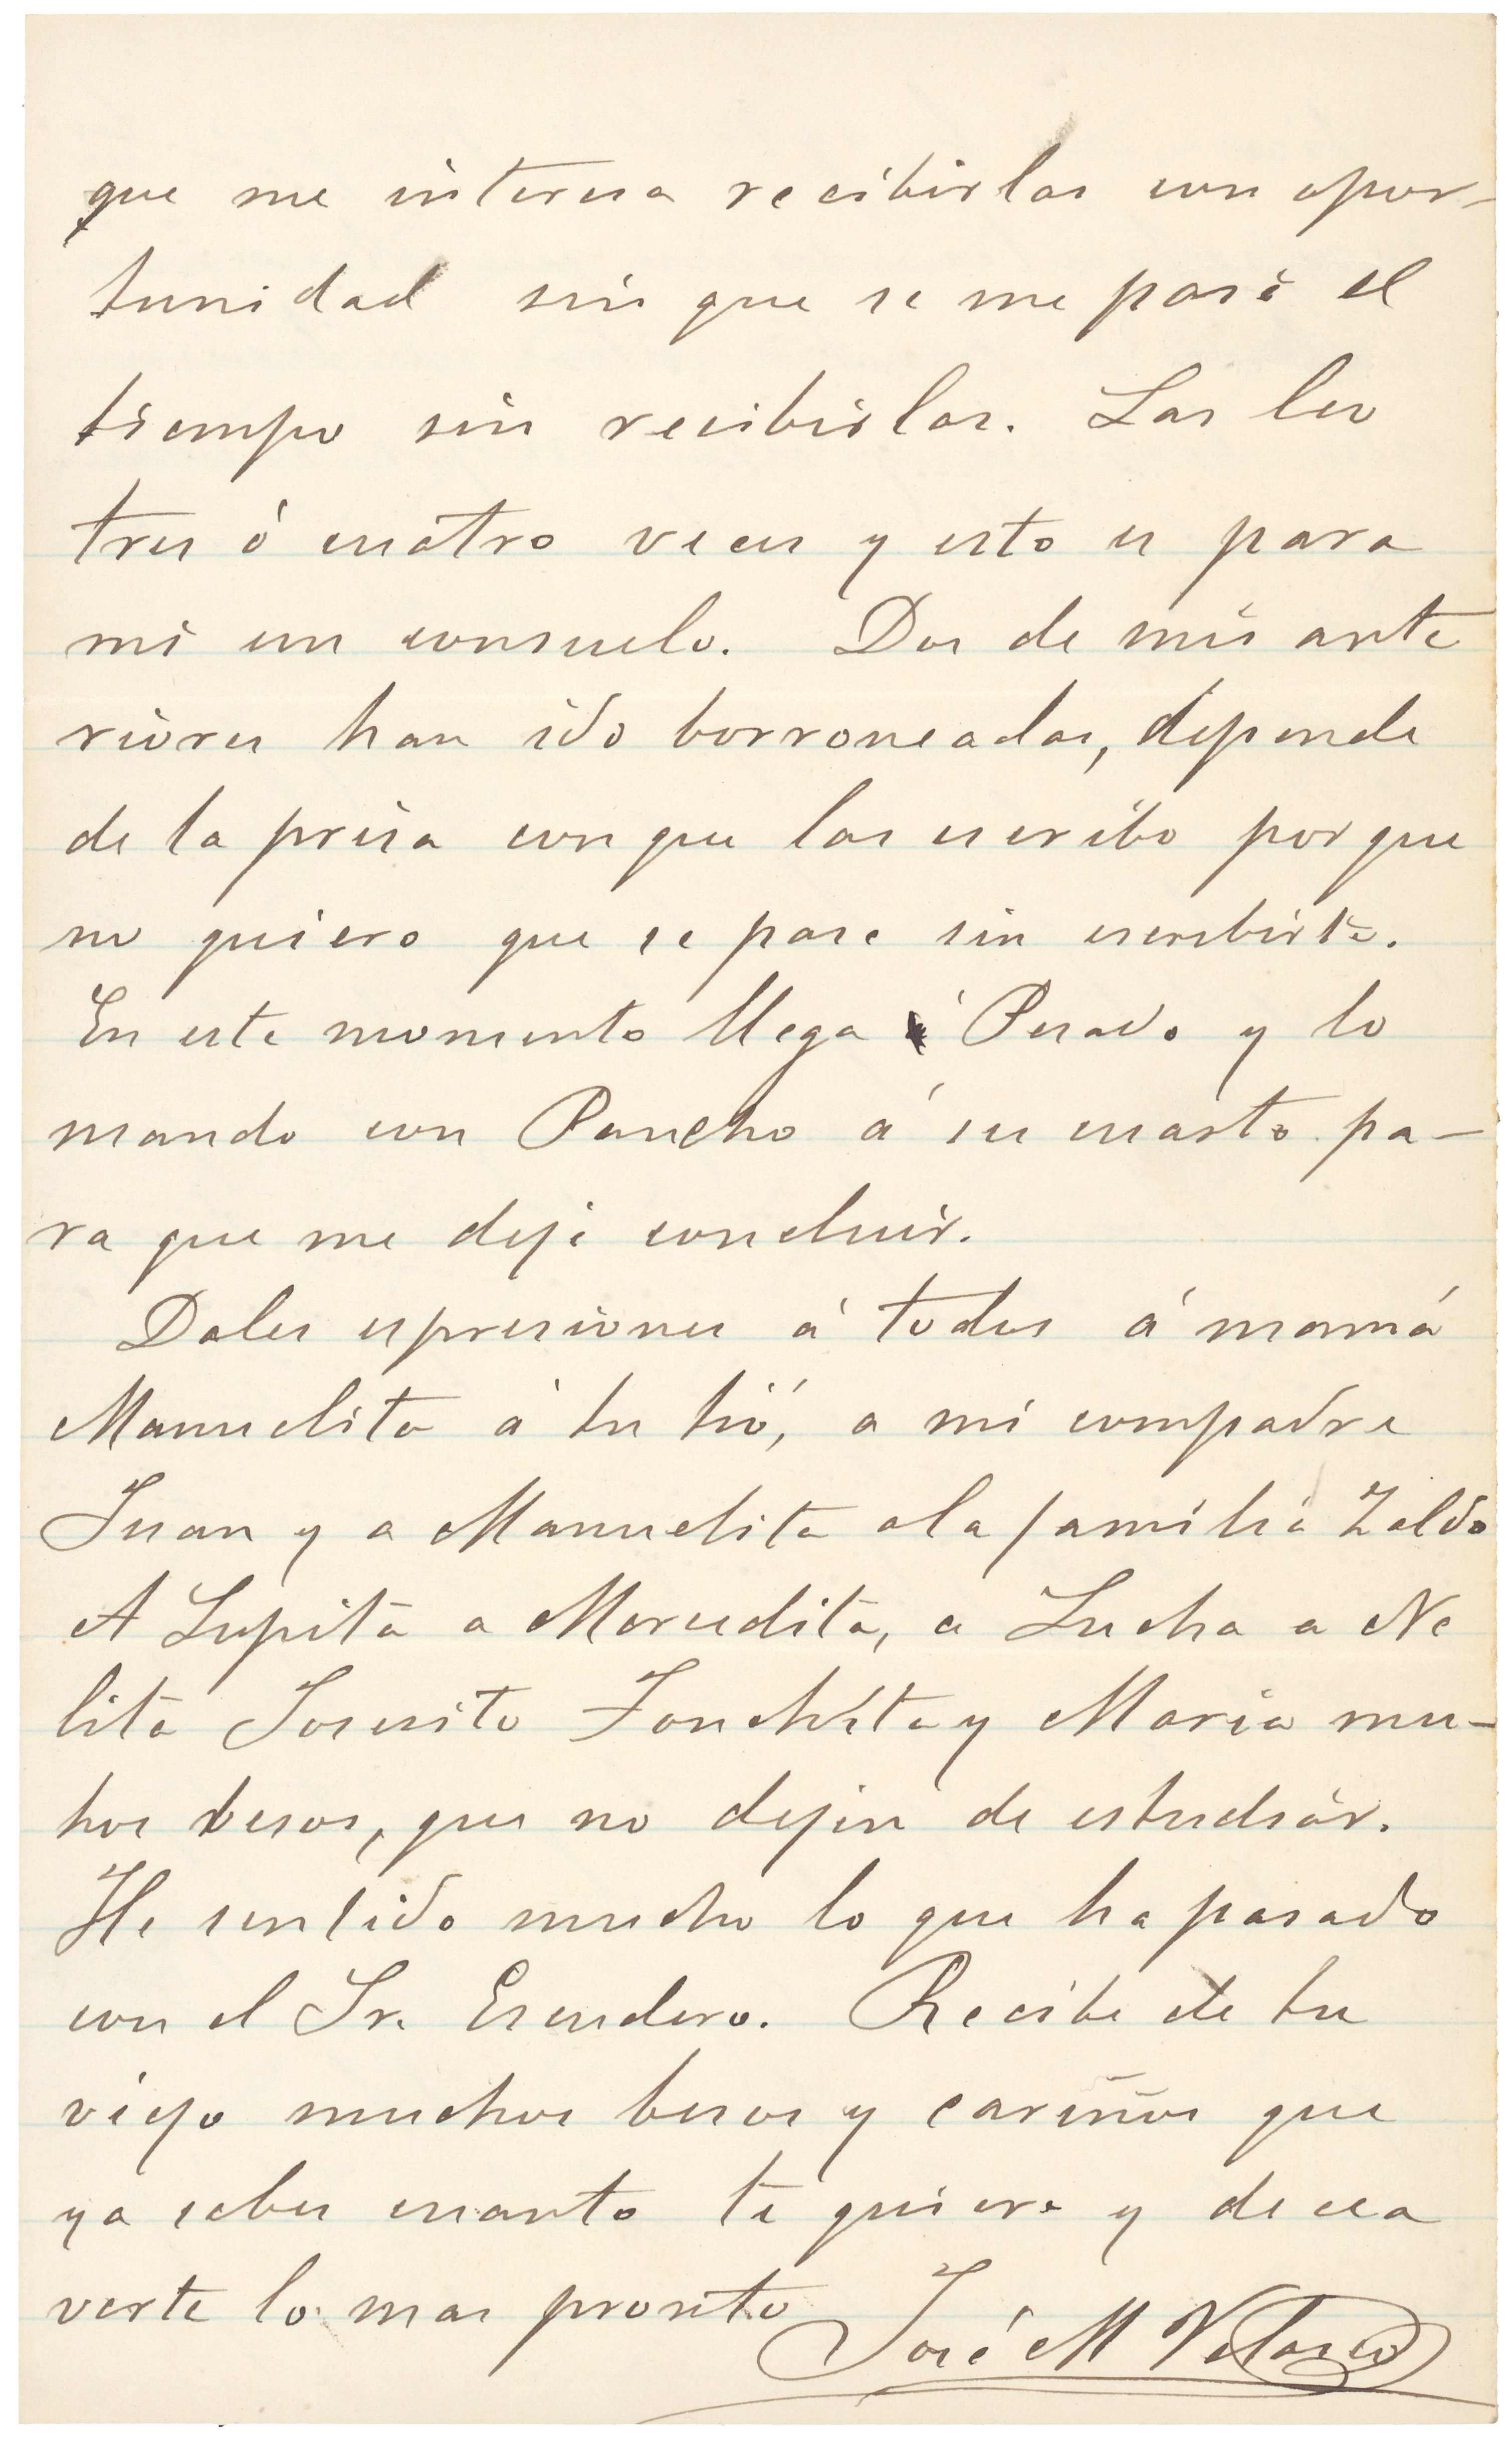 que me interesa recibirlas con opor-
tunidad sin que se me pase el
tiempo sin recibirlas. Las leo
tres ó cuatro veces y esto es para
mi un consuelo. Dos de mis ante
riores han ido borroneadas, depende
de la prisa con que las escribo porque
no quiero que se pase sin escribirte.
En este momento llega Pesado y lo
mando con Pancho á su cuarto pa-
ra que me deje concluir.
Dales espresiones á todos á mamá
Manuelita á tu tió, a mi compadre
Juan y a Manuelita a la familia Zaldo
A Lupita a Mercedita, a Lucha a Ne
lita Josesito Fonchita y Maria mu-
hos besos, que no dejen de estudiar.
He sentido mucho lo que ha pasado
con el Sr. Escudero. Recibe de tu
viejo muchos besos y cariños que
ya sabes cuanto te quiere y decea
verte lo mas pronto
José M Velasco